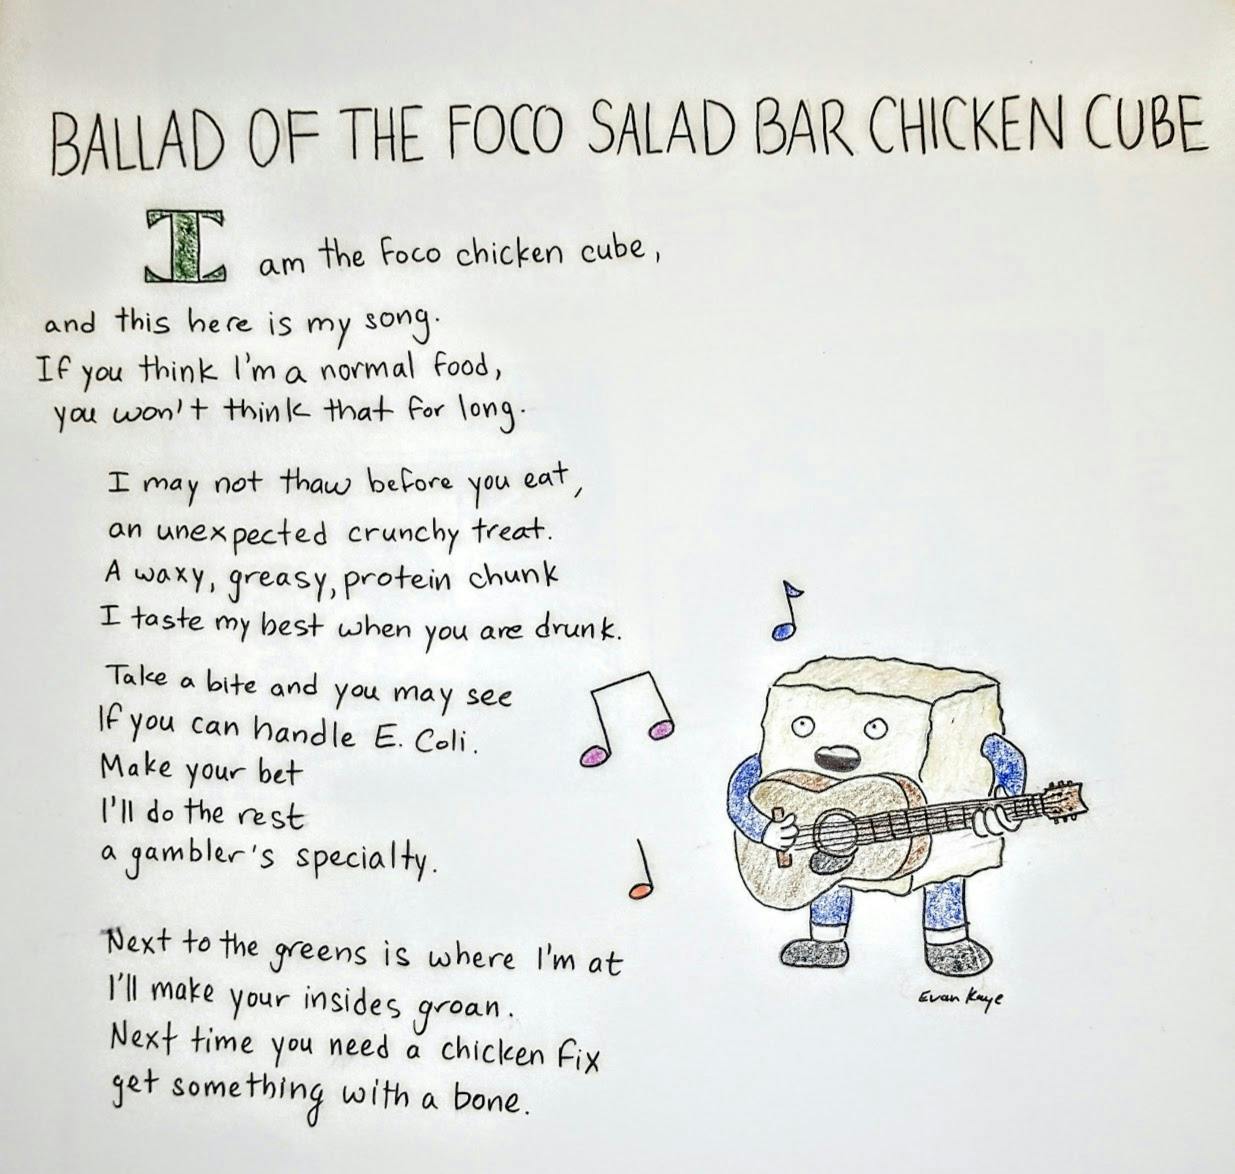 BALLAD OF THE FOCO SALAD BAR CHICKEN CUBE
I am the Foco chicken cube,
and this here is my song.
If you think I'm a normal food,
you won't think that for long.
I may not thaw before you eat,
an unexpected crunchy treat.
A waxy, greasy, protein chunk
I taste my best when you are drunk.
Take a bite and you may see
If you can handle E. Coli.
Make your bet
I'll do the rest
a gambler's specialty.
Next to the greens is where I'm at
I'll make your insides groan.
Next time you need a chicken fix
get something with a bone.
Evan Kaye